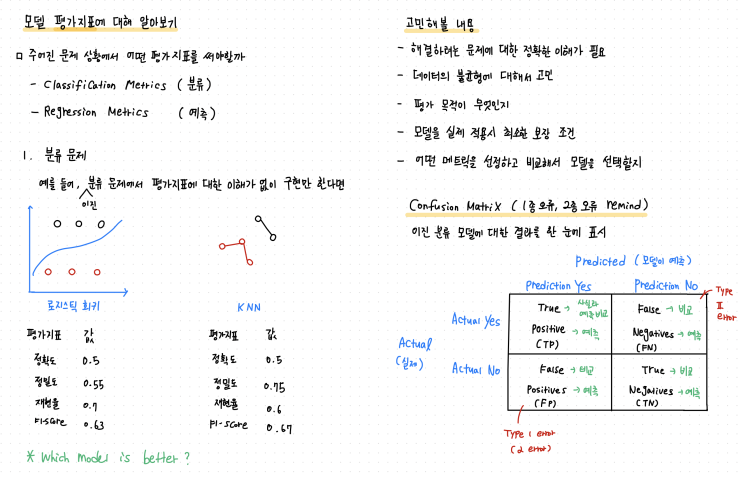 모델 평가지표에 대해 알아보기
□ 주어진 문제 상황에서 어떤 평가지표를 써야할까
- Classification Metrics ( 분류 )
- Regression Metrics ( 예측 )
1. 분류 문제
예를 들어, 분류 문제에서 평가지표에 대한 이해가 없이 구현만 한다면
이진
로지스틱 회귀
KNN
평가지표 값
정확도 0.5
정밀도 0.55
재현율 0.7
F1-score 0.63
평가지표 값
정확도 0.5
정밀도 0.75
재현율 0.6
F1-score 0.67
* Which model is better ?
고민해볼 내용
- 해결하려는 문제에 대한 정확한 이해가 필요
- 데이터의 불균형에 대해서 고민
- 평가 목적이 무엇인지
- 모델을 실제 적용시 최소한 보장 조건
- 어떤 메트릭을 선정하고 비교해서 모델을 선택할지
Confusion Matrix ( 1종 오류, 2종 오류 remind )
이진 분류 모델에 대한 결과를 한 눈에 표시
Predicted ( 모델이 예측 )
Prediction Yes Prediction No
Type II error
Actual (실제)
Actual Yes
True → 사실과 예측 비교
Positive → 예측
(TP)
False → 비교
Negatives → 예측
(FN)
Actual No
False → 비교
Positives → 예측
(FP)
True → 비교
Negatives → 예측
(TN)
Type 1 error
(α error)